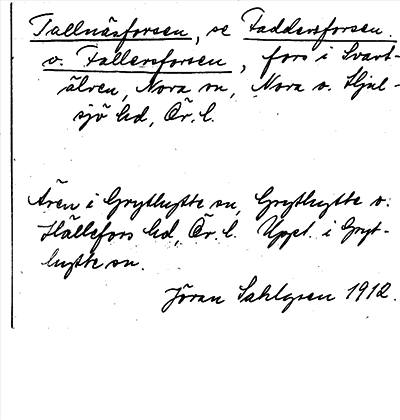 Tallnäsforsen, se Faddersforsen.
o. Fallersforsen, fors i Svart-
älven, Nora sn, Nora o. Hjul-
sjö hd, Ör. l.
Även i Grythytte sn, Grythytte o.
Hällefors hd, Ör. l. Uppt. i Gryt-
hytte sn.
Jöran Sahlgren 1912.